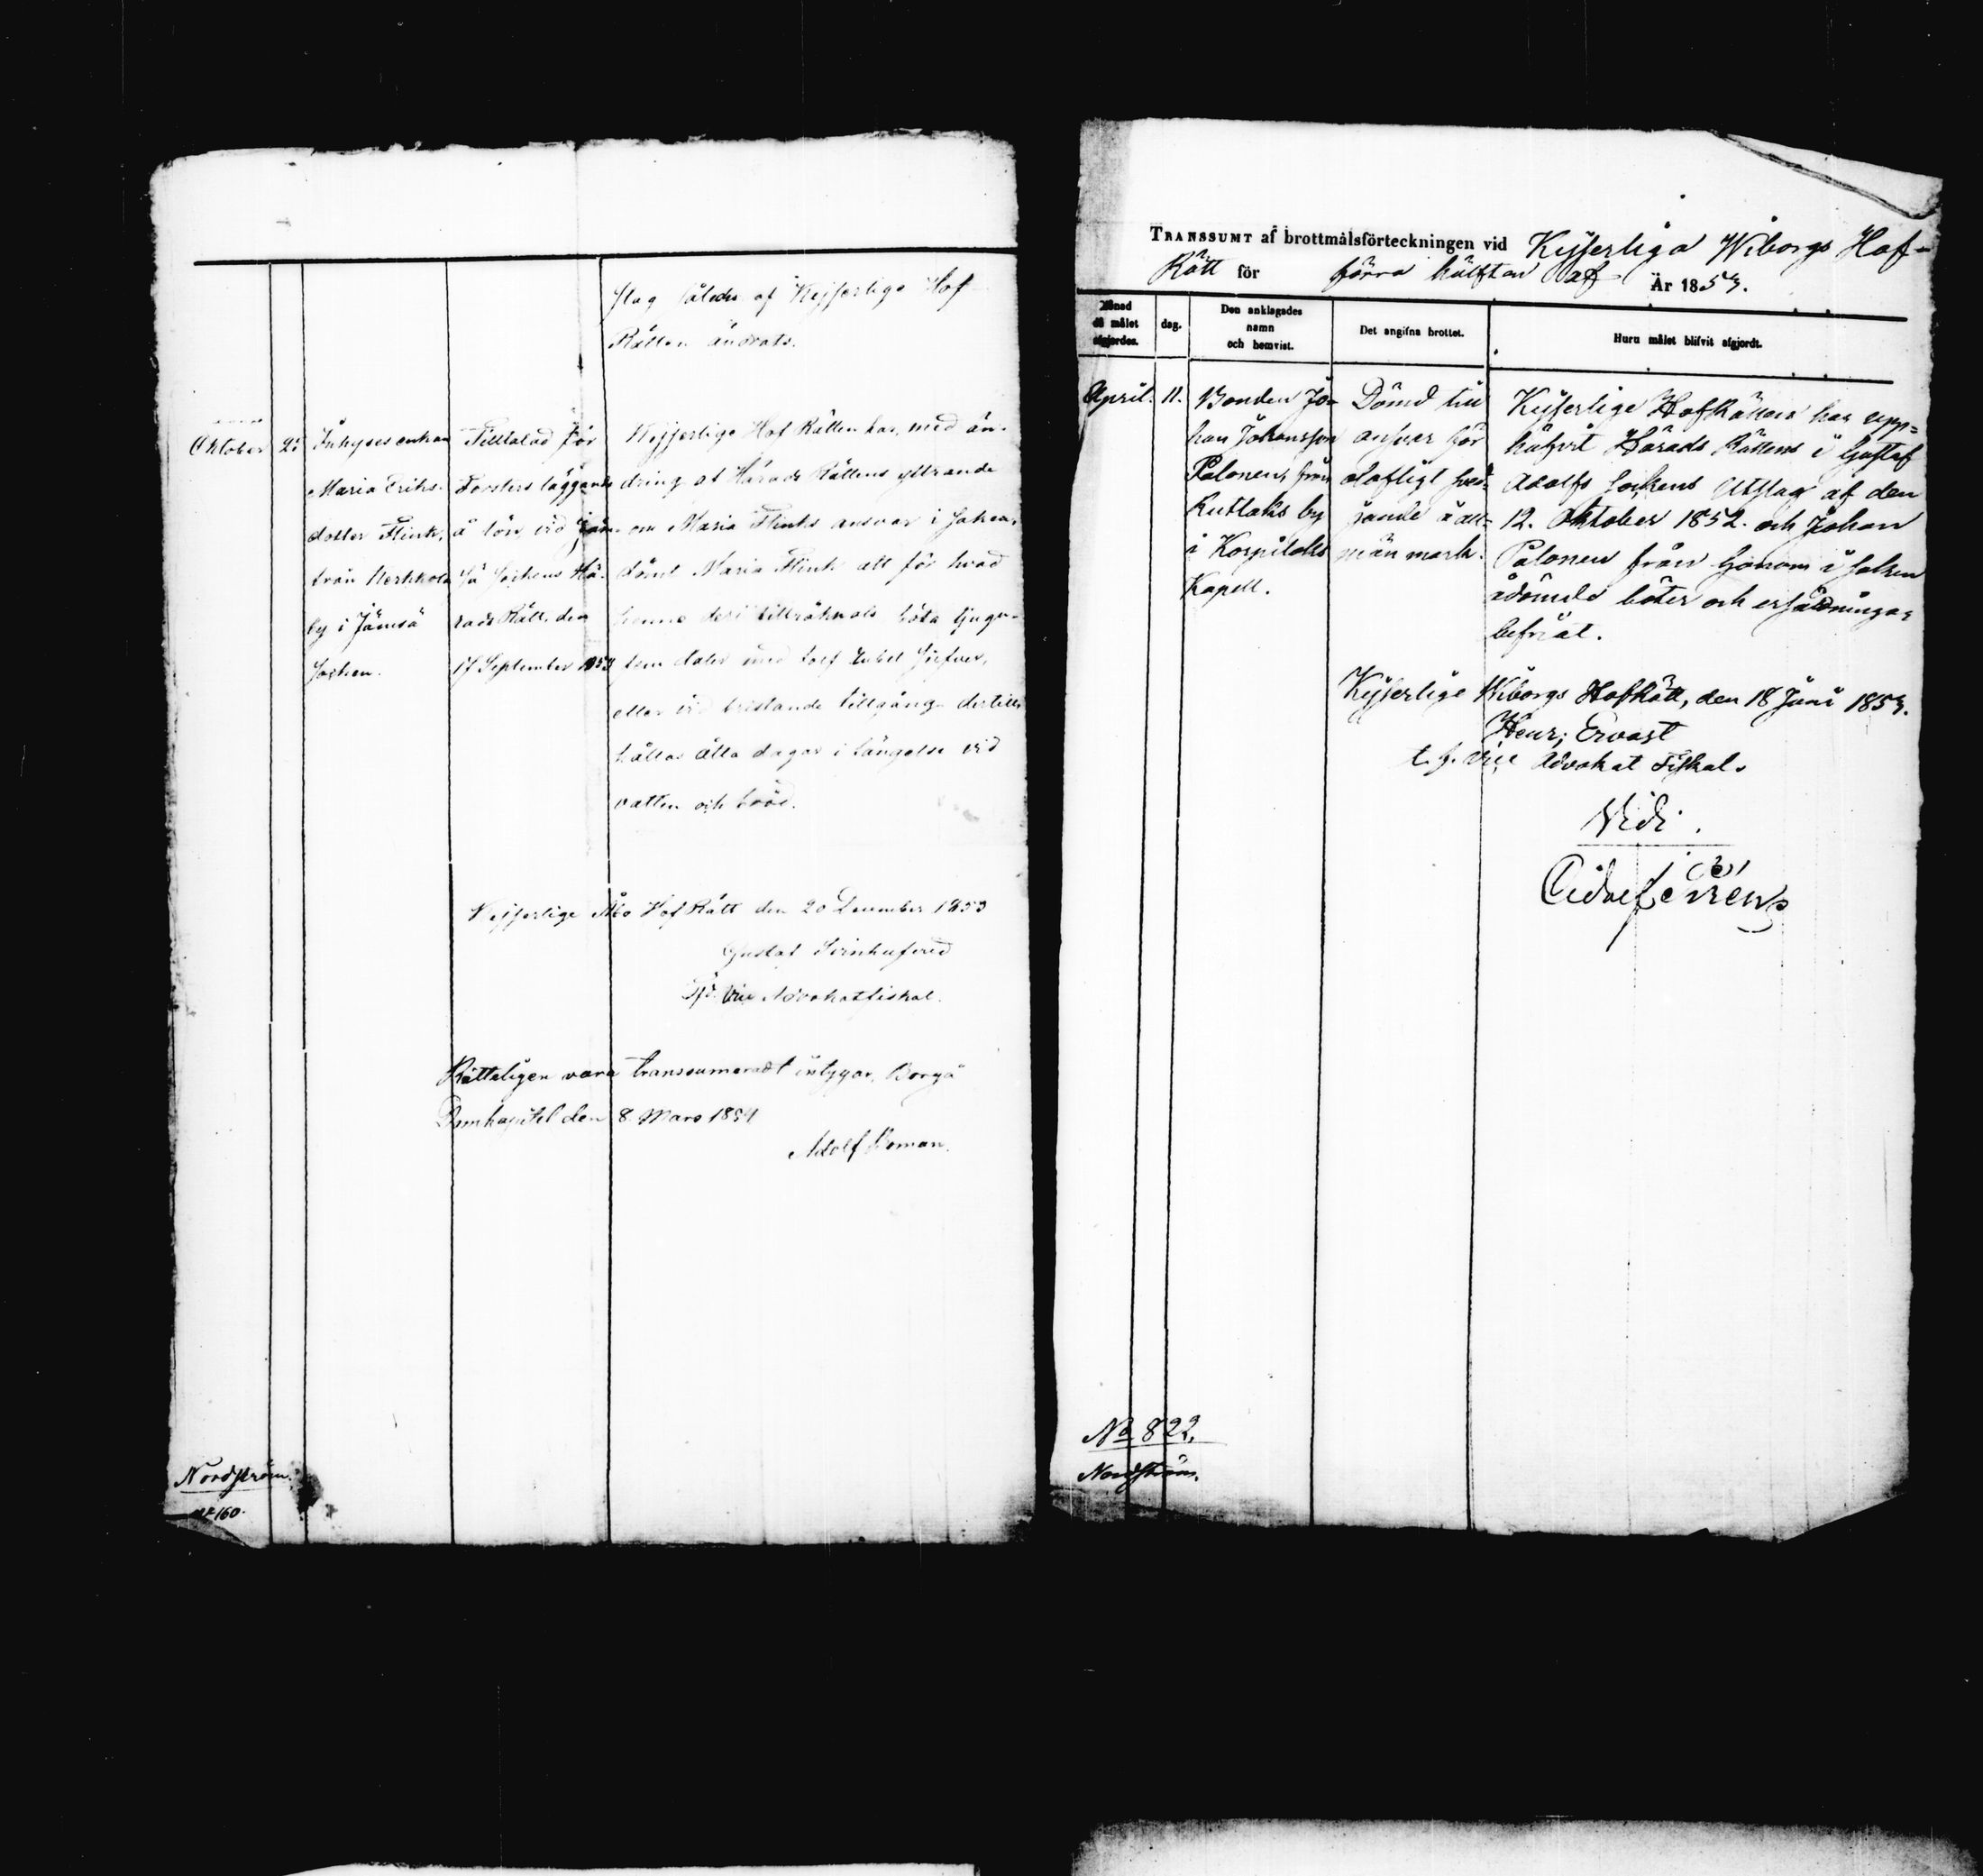 slag således af Kejserliga Hof
Rätten ändrats.
Oktober
Inhyses enkan
Maria Eriks-
dotter Flink,
från
by i Jämsä
Socken.
Tilltalad för
Fosters läggande
å lön vid Jäm-
sä Sockens Hä-
rads Rätt, den
17 September 1853
Kejserliga Hof Rätten har, med än-
dring af Härads Rättens yttrande
om Maria Flinks ansvar i saken,
dömt Maria Flink att för hvad
henne deri tillräknats böta tjugu-
fem daler med tolf kopek Silfver,
eller vid bristande tillgång dertill
hållas åtta dagar i fängelse vid
vatten och bröd.
Kejserliga Åbo Hof Rätt den 20 December 1853
Gustaf Svinhufvud
Tjf. Vice Advokatfiskal.
Rätteligen vara transsumeradt intygar, Borgå
Domkapitel den 8 Mars 1854
Adolf Boman.
Nordström.
No 160.
TRANSSUMT af brottmålsförteckningen vid Kejserliga Wiborgs Hof-
Rätt för förra hälften af År 1853.
Månad
då målet
afgjordes.
dag.
Den anklagades
namn
och hemvist.
Det angifna brottet.
Huru målet blifvit afgjordt.
April. 11.
Bonden Jo-
han Johansson
Palonen, från
Ruttaks by
i Korpilaks
Kapell.
Dömd till
ansvar för
olofligt sved-
jande å all-
män mark.
Kejserliga HofRätten har upp-
häfvit Härads Rättens i Gustaf
Adolfs Sockens Utslag af den
12. Oktober 1852. och Johan
Palonen från honom i saken
ådömde böter och ersättningar
befriat.
Kejserliga Wiborgs HofRätt, den 18 Juni 1853.
Henr; Ervast
t. f. Vice Advokat Fiskal.
Vidi.
No 822.
Nordström.